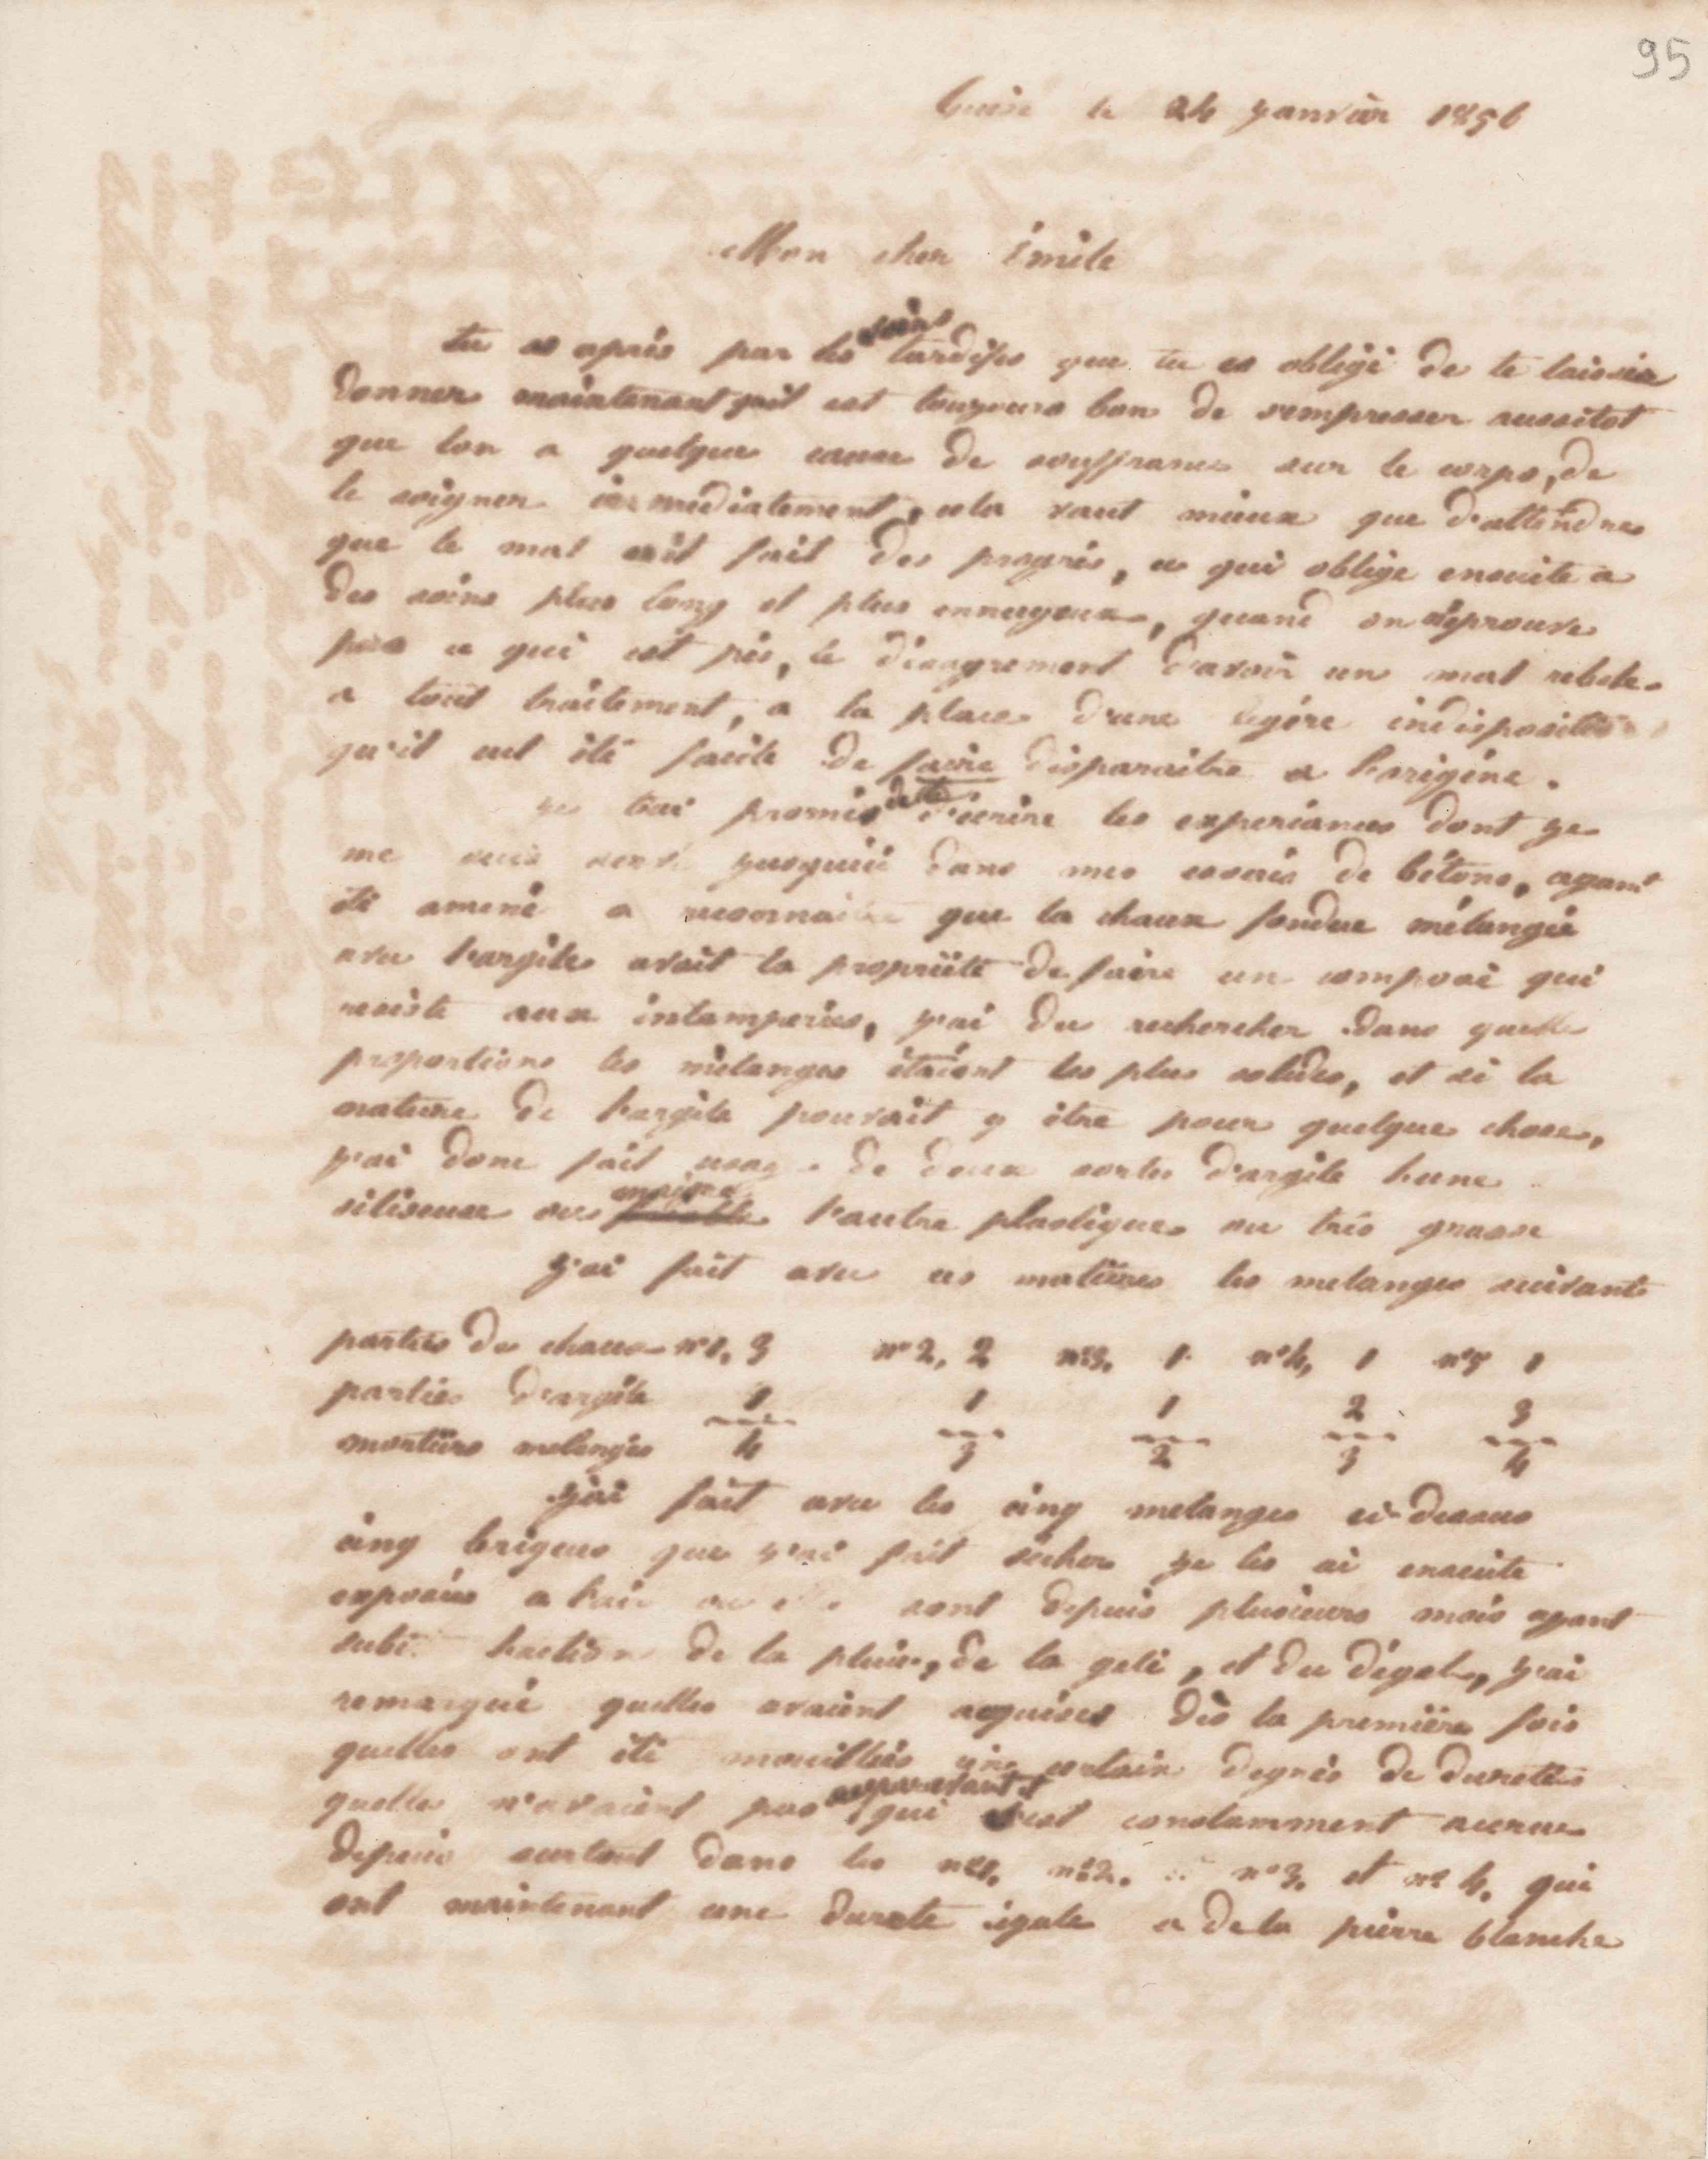 95
Guise le 24 janvier 1856
Mon cher Émile
soins
tu as apris par les tardifes que tu es obligé de te laisser
donner maintenant quil est toujours bon de s'empresser aussitot
que lon a quelque cause de souffrance sur le corps, de
le soigner immediatement, cela vaut mieux que d'attendre
que le mal ait fait des progrès, ce qui oblige ensuite a
des soins plus long et plus ennuyeux, quand on n'éprouve
pas ce qui est pis, le désagrement d'avoir un mal rebele
a tout traitement, a la place d'une légére indisposition
qu'il eut été facile de faire disparaitre a l'origine.
je t'ai promis de te d'écrire les experiances dont je
me suis servi jusquici dans mes essais de bétons, ayant
été amené a reconnaitre que la chaux fondue mélangée
avec l'argile avait la propriété de faire un composé qui
resiste aux intamperies, j'ai du rechercher dans quelle
proportions les mélanges étaient les plus solides, et si la
nature de l'argile pouvait y être pour quelque chose,
j'ai donc fait usage de deux sortes d'argile l'une
siliseuse ou maigre l'autre plastique ou très grasse
j'ai fait avec ces matières les melanges suivants
parties de chaux n°1, 3 n°2, 2 n°3. 1 n°4, 1 n°5 1
parties d'argile 1 1 1 2 3
matières melangés 4 3 2 3 4
j'ai fait avec les cinq melanges ci-dessus
cinq briques que j'ai fait sécher je les ai ensuite
exposées a l'air ou elle sont depuis plusieurs mois ayant
subi l'action de la pluie, de la gelé, et du dégel, j'ai
remarqué quelles avaient acquises dès la première fois
quelles ont été mouillées une certain degrés de duretés
quelles n'avaient pas auparavant et qui s'est constamment accrue
depuis surtout dans les n°1. n°2. n°3. et n° 4. qui
ont maintenant une dureté égale a de la pierre blanche